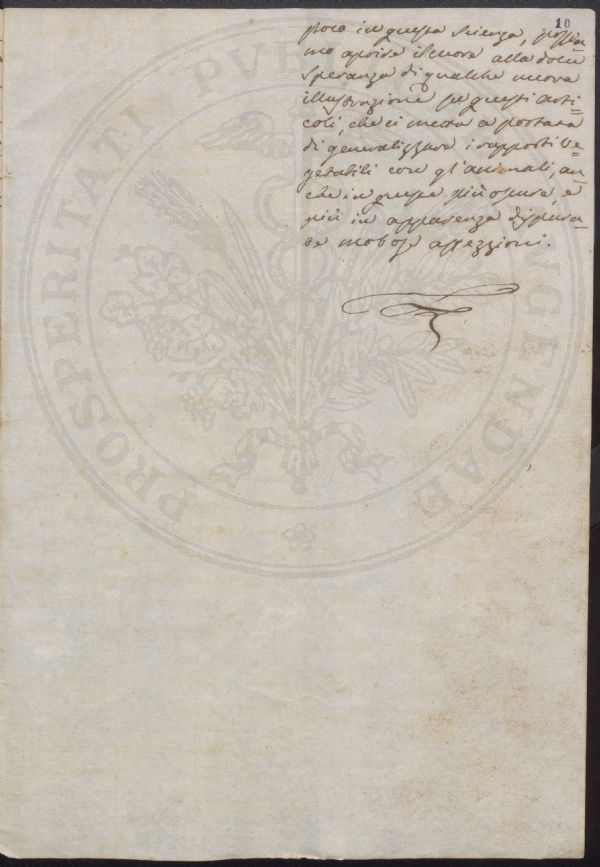 10
poco in questa scienza, possia-
mo aprire il cuore alla dolce
speranza di qualche nuova
illustrazione su questi arti-
coli, che ci metta a portata
di generalizzare i rapporti ve-
getabili con gl'animali, an-
che in queste più oscure, e
più in apparenza dispara-
te morbose affezzioni.
PROSPERITATI PUBLICAE AUGENDAE